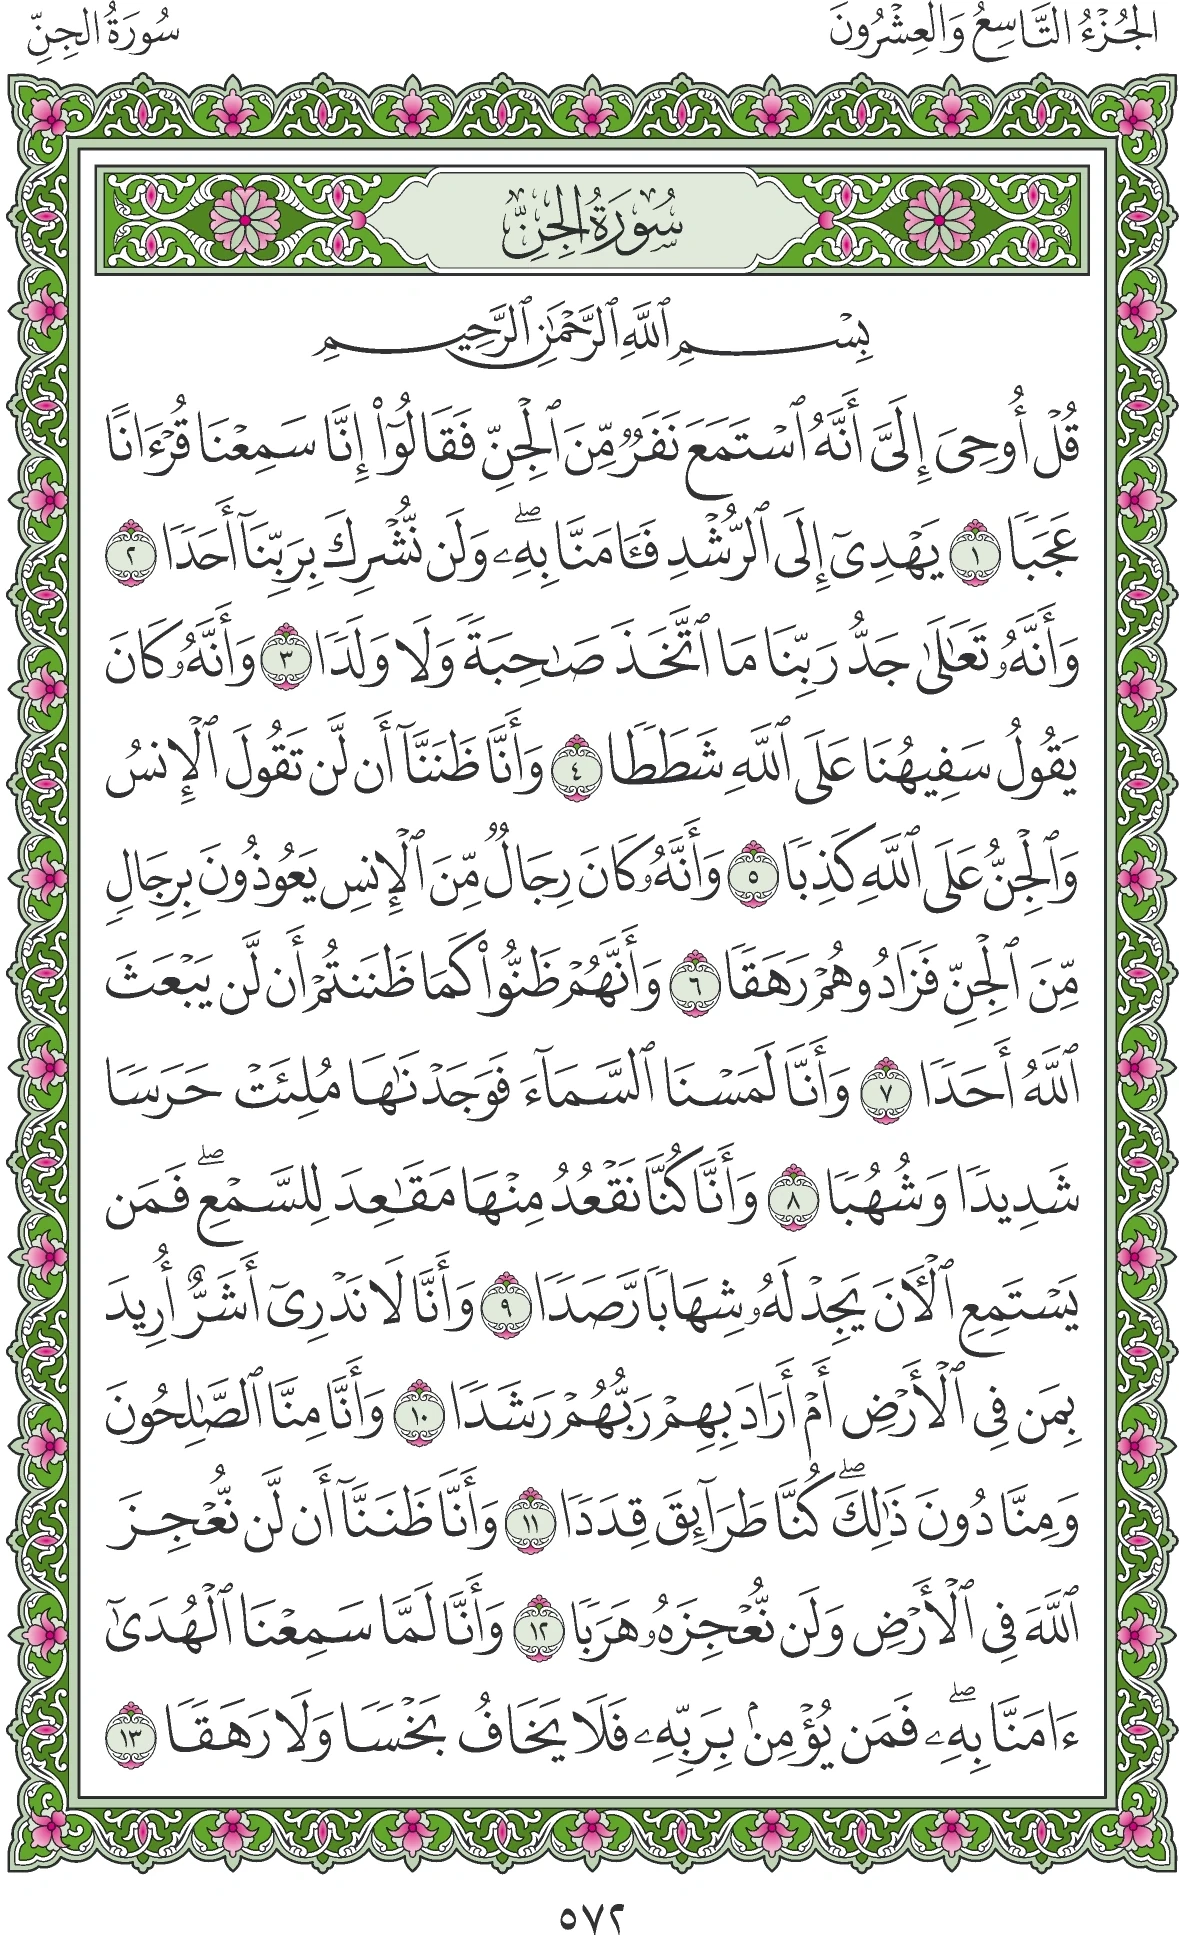 الجُزْءُ التَّاسِعُ وَالعِشْرُونَ
سُورَةُ الجِنِّ
سُورَةُ الجِنِّ
بِسْمِ ٱللَّهِ ٱلرَّحْمَٰنِ ٱلرَّحِيمِ
قُلْ أُوحِىَ إِلَىَّ أَنَّهُ ٱسْتَمَعَ نَفَرٌ مِّنَ ٱلْجِنِّ فَقَالُوٓا۟ إِنَّا سَمِعْنَا قُرْءَانًا
عَجَبًا ١ يَهْدِىٓ إِلَى ٱلرُّشْدِ فَـَٔامَنَّا بِهِۦ ۖ وَلَن نُّشْرِكَ بِرَبِّنَآ أَحَدًا ٢
وَأَنَّهُۥ تَعَٰلَىٰ جَدُّ رَبِّنَا مَا ٱتَّخَذَ صَٰحِبَةً وَلَا وَلَدًا ٣ وَأَنَّهُۥ كَانَ
يَقُولُ سَفِيهُنَا عَلَى ٱللَّهِ شَطَطًا ٤ وَأَنَّا ظَنَنَّآ أَن لَّن تَقُولَ ٱلْإِنسُ
وَٱلْجِنُّ عَلَى ٱللَّهِ كَذِبًا ٥ وَأَنَّهُۥ كَانَ رِجَالٌ مِّنَ ٱلْإِنسِ يَعُوذُونَ بِرِجَالٍ
مِّنَ ٱلْجِنِّ فَزَادُوهُمْ رَهَقًا ٦ وَأَنَّهُمْ ظَنُّوا۟ كَمَا ظَنَنتُمْ أَن لَّن يَبْعَثَ
ٱللَّهُ أَحَدًا ٧ وَأَنَّا لَمَسْنَا ٱلسَّمَآءَ فَوَجَدْنَٰهَا مُلِئَتْ حَرَسًا
شَدِيدًا وَشُهُبًا ٨ وَأَنَّا كُنَّا نَقْعُدُ مِنْهَا مَقَٰعِدَ لِلسَّمْعِ ۖ فَمَن
يَسْتَمِعِ ٱلْـَٔانَ يَجِدْ لَهُۥ شِهَابًا رَّصَدًا ٩ وَأَنَّا لَا نَدْرِىٓ أَشَرٌّ أُرِيدَ
بِمَن فِى ٱلْأَرْضِ أَمْ أَرَادَ بِهِمْ رَبُّهُمْ رَشَدًا ١٠ وَأَنَّا مِنَّا ٱلصَّٰلِحُونَ
وَمِنَّا دُونَ ذَٰلِكَ ۖ كُنَّا طَرَآئِقَ قِدَدًا ١١ وَأَنَّا ظَنَنَّآ أَن لَّن نُّعْجِزَ
ٱللَّهَ فِى ٱلْأَرْضِ وَلَن نُّعْجِزَهُۥ هَرَبًا ١٢ وَأَنَّا لَمَّا سَمِعْنَا ٱلْهُدَىٰٓ
ءَامَنَّا بِهِۦ ۖ فَمَن يُؤْمِنۢ بِرَبِّهِۦ فَلَا يَخَافُ بَخْسًا وَلَا رَهَقًا ١٣
٥٧٢